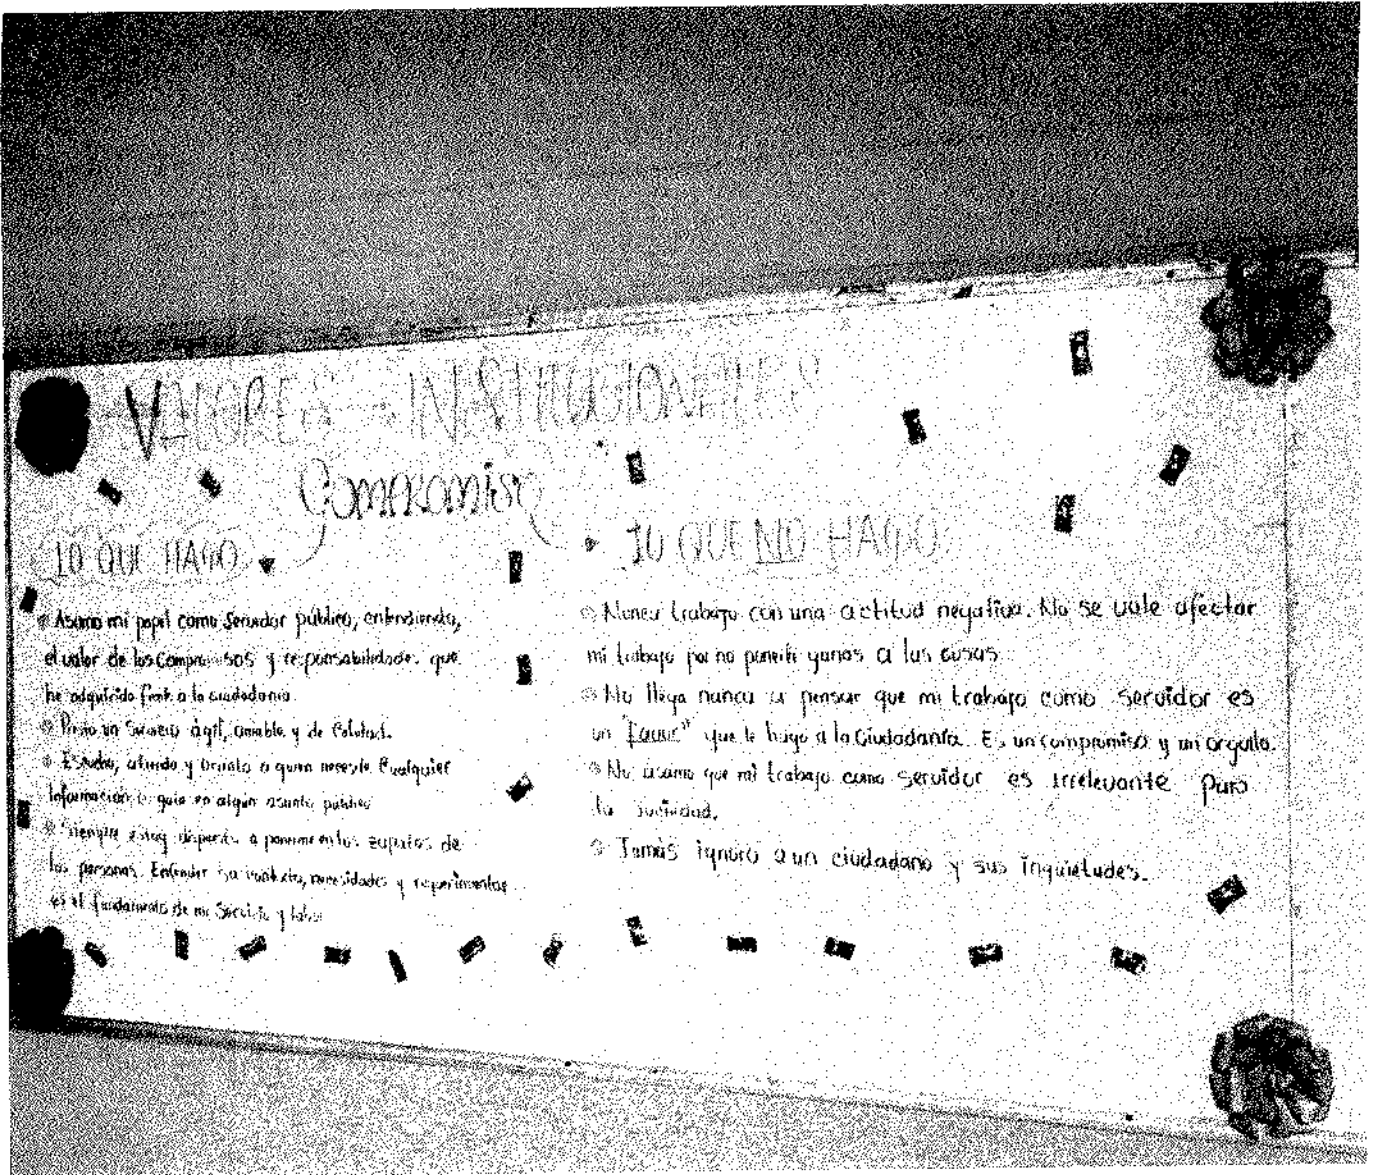 VALORES INSTITUCIONALES
Compromiso
LO QUE HAGO
Asumo mi papel como Servidor público, entendiendo,
el valor de los Compromisos y responsabilidades que
he adquirido frente a la ciudadanía.
Presto un Servicio ágil, amable y de Calidad.
Escucho, atiendo y oriento a quien necesite Cualquier
Información o guía en algún asunto público
Siempre estoy dispuesto a ponerme en los zapatos de
las personas. Entender su contexto, necesidades y requerimientos
es el fundamento de mi Servicio y labor
LO QUE NO HAGO
Nunca trabajo con una actitud negativa. No se vale afectar
mi trabajo por no ponerle ganas a las cosas
No llega nunca a pensar que mi trabajo como servidor es
un "favor" que le hago a la Ciudadanía. Es un compromiso y un orgullo.
No asumo que mi trabajo como servidor es irrelevante para
la sociedad.
Jamás ignoro a un ciudadano y sus inquietudes.